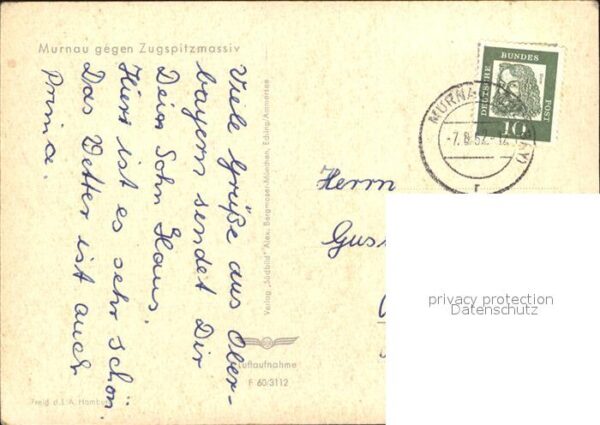 Murnau gegen Zugspitzmassiv
Viele Grüße aus Ober-
bayern sendet Dir
Dein Sohn Klaus.
Hier ist es sehr schön.
Das Wetter ist auch
Prima.
Verlag „Südbild" Alex. Bergmoser-München, Eching/Ammersee
Luftaufnahme
F 60/3112
Freig. d. L. A. Hamburg
DEUTSCHE BUNDES POST
10
MURNAU
-7.8.62.-12
Herrn
Gus
privacy protection
Datenschutz